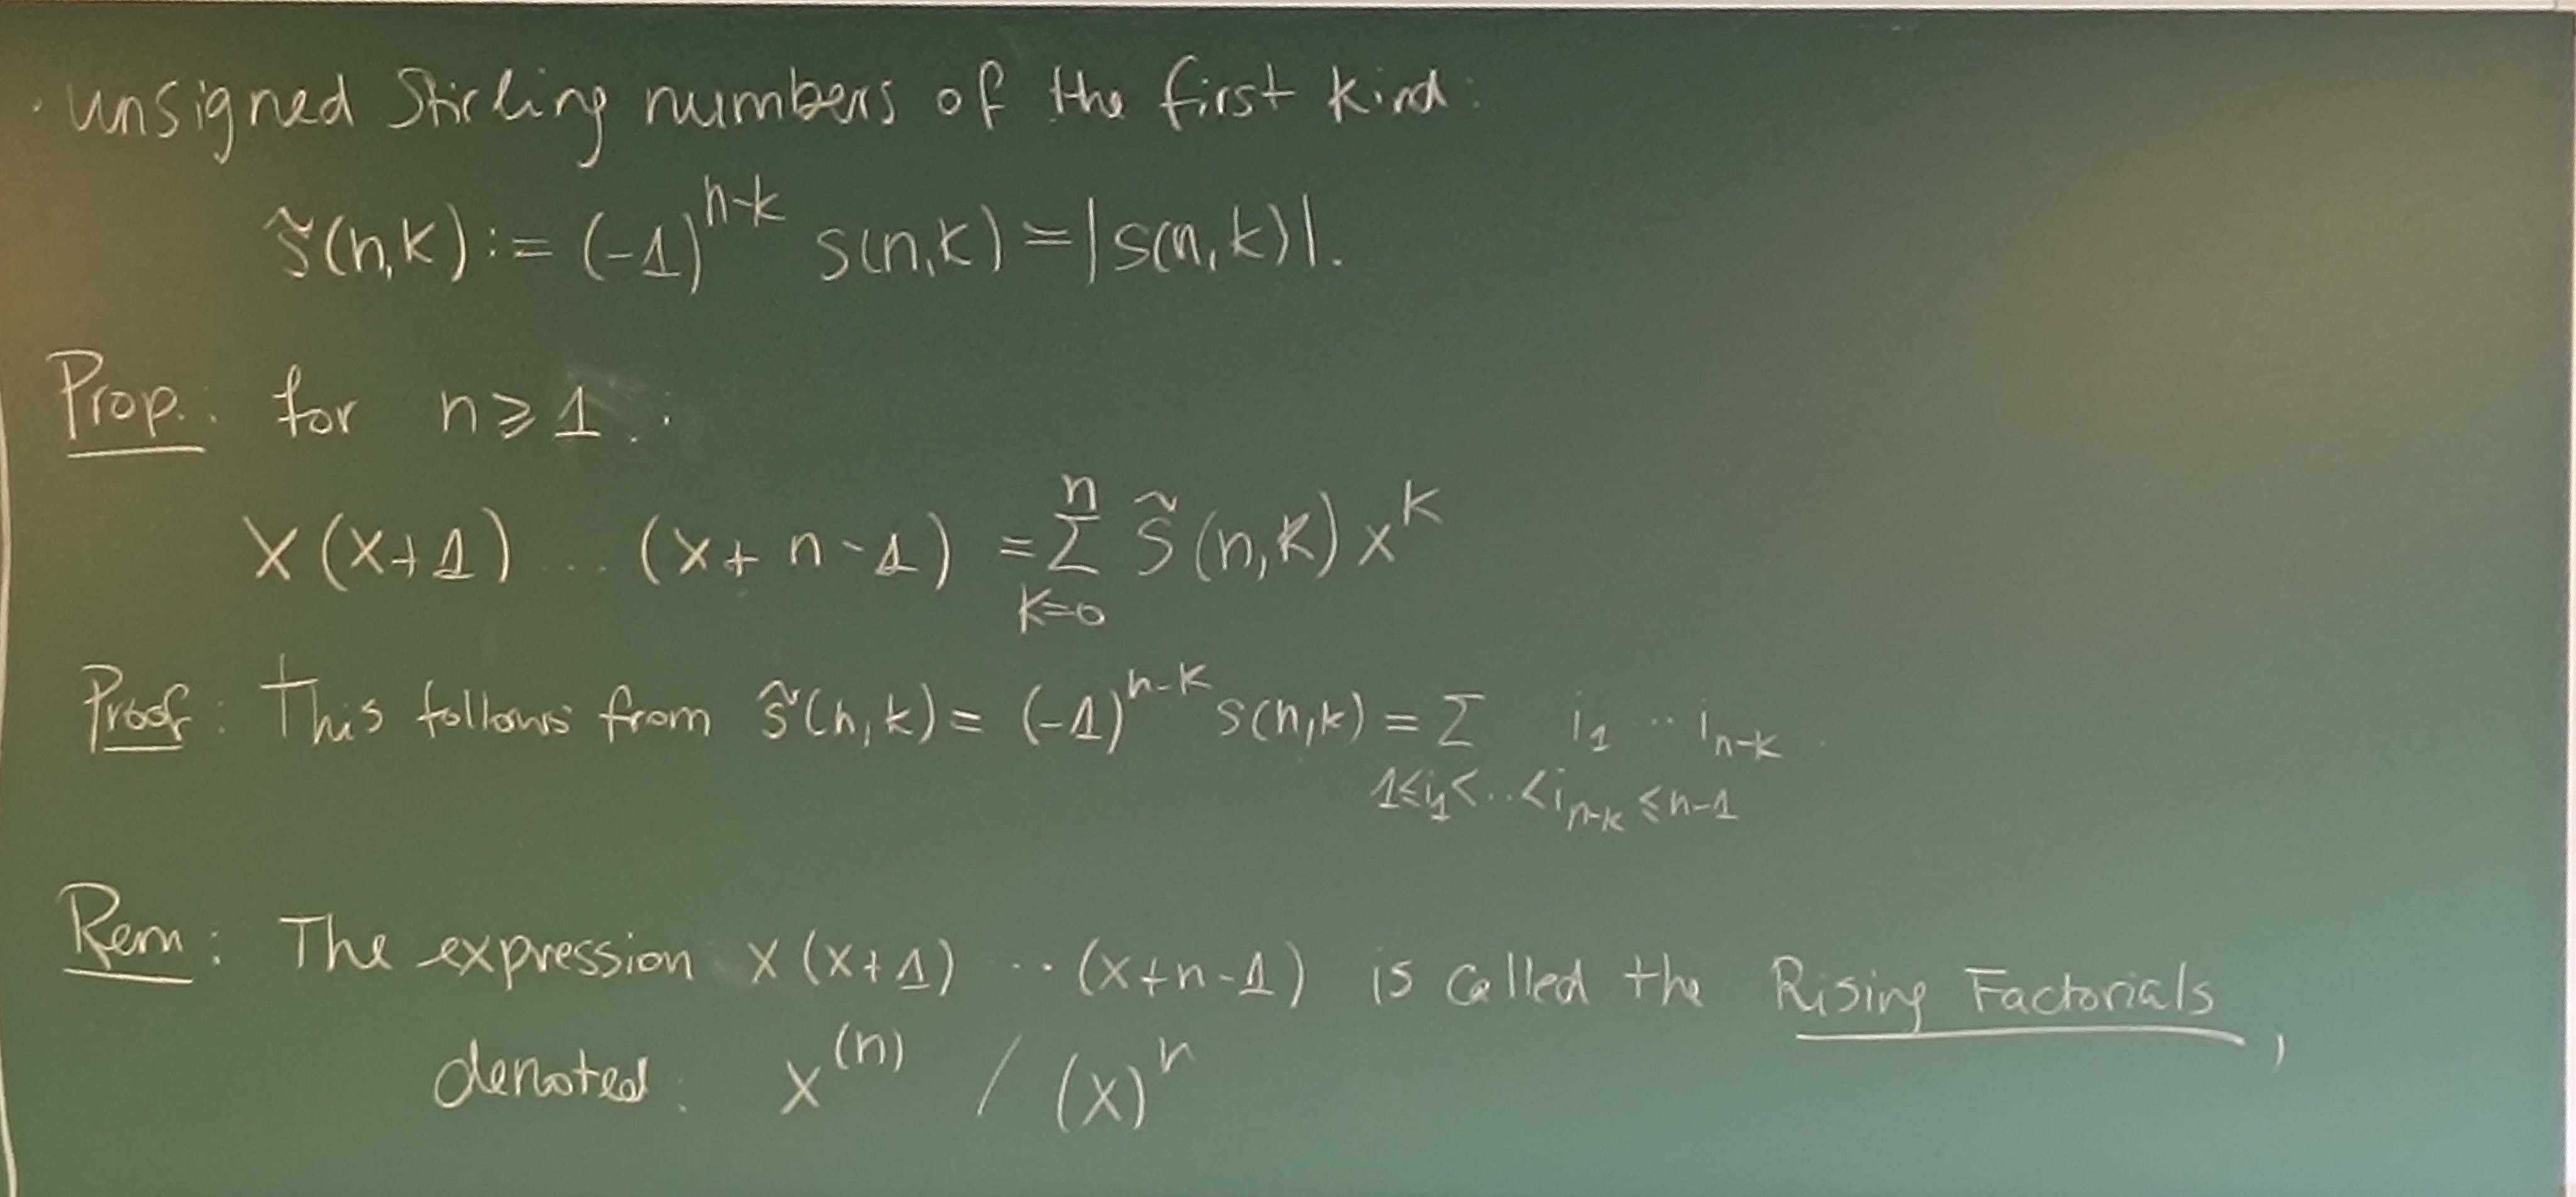 · unsigned Stirling numbers of the first kind:
s̃(n,k) := (-1)^{n-k} s(n,k) = |s(n,k)|.
Prop.: for n ≥ 1 :
x(x+1) ... (x+n-1) = ∑_{k=0}^{n} s̃(n,k) x^k
Proof: This follows from s̃(n,k) = (-1)^{n-k} s(n,k) = ∑_{1≤i_1<..<i_{n-k}≤n-1} i_1 ... i_{n-k}
Rem: The expression x(x+1) ... (x+n-1) is called the Rising Factorials,
denoted: x^{(n)} / (x)^n